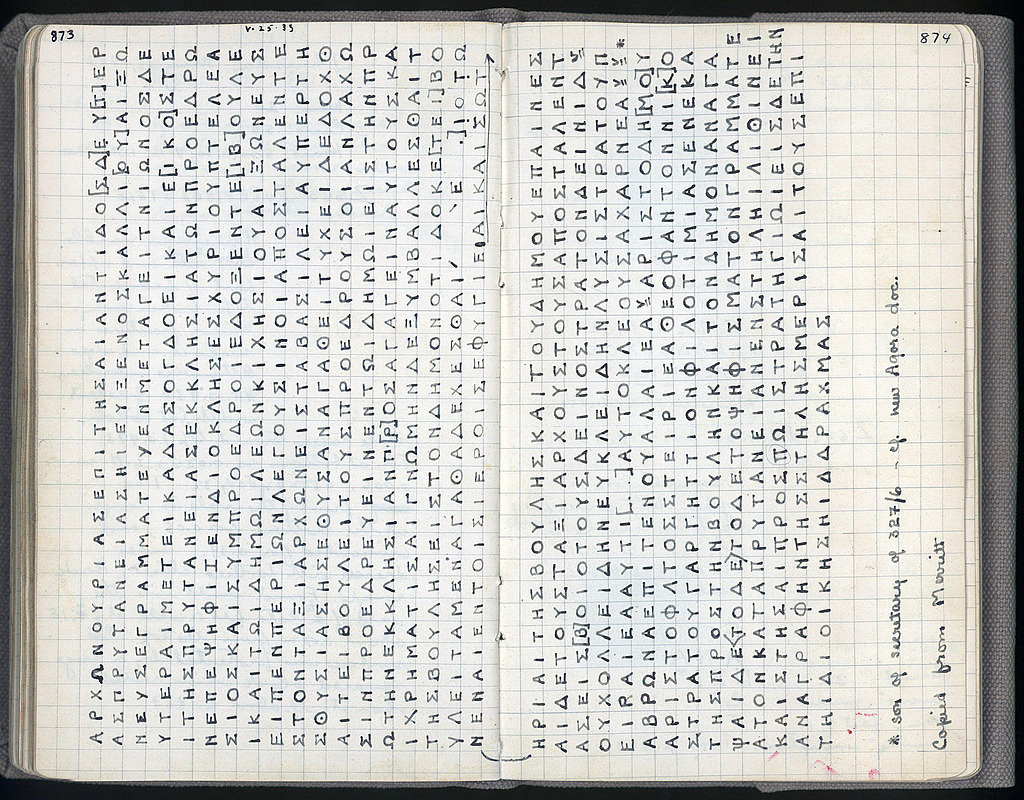 873
V.25.35
ΑΡΧΩΝΟΥΡΙΑΣΕΠΙΤΗΣΑΙΑΝΤΙΔΟ[ΣΔ]ΕΥ[Τ]ΕΡ
ΑΣΠΡΥΤΑΝΕΙΑΣΗΙΕΥΞΕΝΟΣΚΑΛΛΙ[ΟΥ]ΑΙΞΩ
ΝΕΥΣΕΓΡΑΜΜΑΤΕΥΕΝΜΕΤΑΓΕΙΤΝΙΩΝΟΣΔΕ
ΥΤΕΡΑΙΜΕΤΕΙΚΑΔΑΣΟΓΔΟΕΙΚΑΙΕ[ΙΚΟ]ΣΤΕ
ΙΤΗΣΠΡΥΤΑΝΕΙΑΣΕΚΚΛΗΣΙΑΤΩΝΠΡΟΕΔΡΩ
ΝΕΠΕΨΗΦΙΖΕΝΔΙΟΚΛΗΣΕΣΧΥΡΙΟΥΠΤΕΛΕΑ
ΣΙΟΣΚΑΙΣΥΜΠΡΟΕΔΡΟΙΕΔΟΞΕΝΤΕ[ΙΒ]ΟΥΛΕ
ΙΚΑΙΤΩΙΔΗΜΩΙΛΕΩΝΚΙΧΗΣΙΟΥΑΙΞΩΝΕΥΣ
ΕΙΠΕΝΠΕΡΙΩΝΛΕΓΟΥΣΙΝΟΙΑΠΟΣΤΑΛΕΝΤΕ
ΣΤΟΝΤΑΞΙΑΡΧΩΝΕΙΣΤΑΒΑΣΙΛΕΙΑΥΠΕΡΤΗ
ΣΘΥΣΙΑΣΗΣΕΘΥΣΑΝΑΓΑΘΕΙΤΥΧΕΙΔΕΔΟΧΘ
ΑΙΤΕΙΒΟΥΛΕΙΤΟΥΣΠΡΟΕΔΡΟΥΣΟΙΑΝΛΑΧΩ
ΣΙΝΠΡΟΕΔΡΕΥΕΙΝΕΝΤΩΙΔΗΜΩΙΕΙΣΤΗΝΠΡ
ΩΤΗΝΕΚΚΛΗΣΙΑΝΠ[Ρ]ΟΣΑΓΑΓΕΙΝΑΥΤΟΥΣΚΑ
ΙΧΡΗΜΑΤΙΣΑΙΓΝΩΜΗΝΔΕΞΥΜΒΑΛΛΕΣΘΑΙΤ
ΤΗΣΒΟΥΛΗΣΕΙΣΤΟΝΔΗΜΟΝΟΤΙΔΟΚΕ[ΤΕΙ]ΒΟ
ΥΛΕΙΤΑΜΕΝΑΓΑΘΑΔΕΧΕΣΘΑΙ Ε .]ΙΟΤΩ
ΝΕΝΑΙΕΝΤΟΙΣΙΕΡΟΙΣΕΦΥΓΙΕΙΑΙΚΑΙΣΩΤ
874
ΗΡΙΑΙΤΗΣΒΟΥΛΗΣΚΑΙΤΟΥΔΗΜΟΥΕΠΑΙΝΕΣ
ΑΙΔΕΤΟΥΣΤΑΞΙΑΡΧΟΥΣΤΟΥΣΑΠΟΣΤΑΛΕΝΤ
ΑΣΕΙΣ[Β]ΟΙΟΤΟΥΣΔΕΙΝΟΣΤΡΑΤΟΝΔΕΙΝΙΑΔ
ΟΥΧΟΛΛΕΙΔΗΝΕΥΚΛΕΙΔΗΝΛΥΣΙΣΤΡΑΤΟΥΠ
ΕΙRΑΙΕΑΑΥΤΙ[..]ΑΥΤΟΚΛΕΟΥΣΑΧΑΡΝΕΑ*
ΑΒΡΩΝΑΕΠΙΤΕΝΟΥΑΛΑΙΕΑΑΡΙΣΤΟΔΗ[ΜΟ]Υ
ΑΡΙΣΤΟΦΛΤΟΣΣΤΕΙΡΙΕΑΘΕΟΦΑΝΤΟΝΝΙ[Κ]Ο
ΣΤΡΑΤΟΥΓΑΡΓΗΤΤΙΟΝΦΙΛΟΤΙΜΙΑΣΕΝΕΚΑ
ΤΗΣΠΡΟΣΤΗΝΒΟΥΛΗΝΚΑΙΤΟΝΔΗΜΟΝΑΝΑΓΑ
ΨΑΙΔΕ<ΤΟΔΕ>ΤΟΔΕΤΟΨΗΦΙΣΜΑΤΟΝΓΡΑΜΜΑΤΕ
ΑΤΟΝΚΑΤΑΠΡΥΤΑΝΕΙΑΝΕΝΣΤΗΛΗΙΛΙΘΙΝΕΙ
ΚΑΙΣΤΗΣΑΙΠΡΟΣΠΩΙΣΤΡΑΤΗΓΙΩΙΕΙΣΔΕΤΗΝ
ΑΝΑΓΡΑΦΗΝΤΗΣΣΤΗΛΗΣΜΕΡΙΣΑΙΤΟΥΣΕΠΙ
ΤΗΙΔΙΟΙΚΗΣΗΙΔΔΔΡΑΧΜΑΣ
* son of secretary of 327/6 - cf new Agora doc.
Copied from Merritt